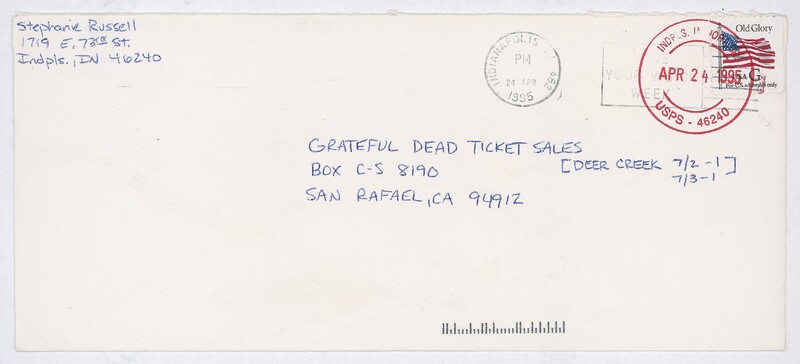 Stephanie Russell
1719 E. 73rd St.
Indpls., IN 46240
INDIANAPOLIS 462
PM
24 APR
1995
YOUR
WEEK
INDPLS. IN
APR 24 1995
USPS - 46240
Old Glory
USA G
For U.S. addresses only
GRATEFUL DEAD TICKET SALES
BOX C-S 8190
[DEER CREEK 7/2-1]
7/3-1
SAN RAFAEL, CA 94912